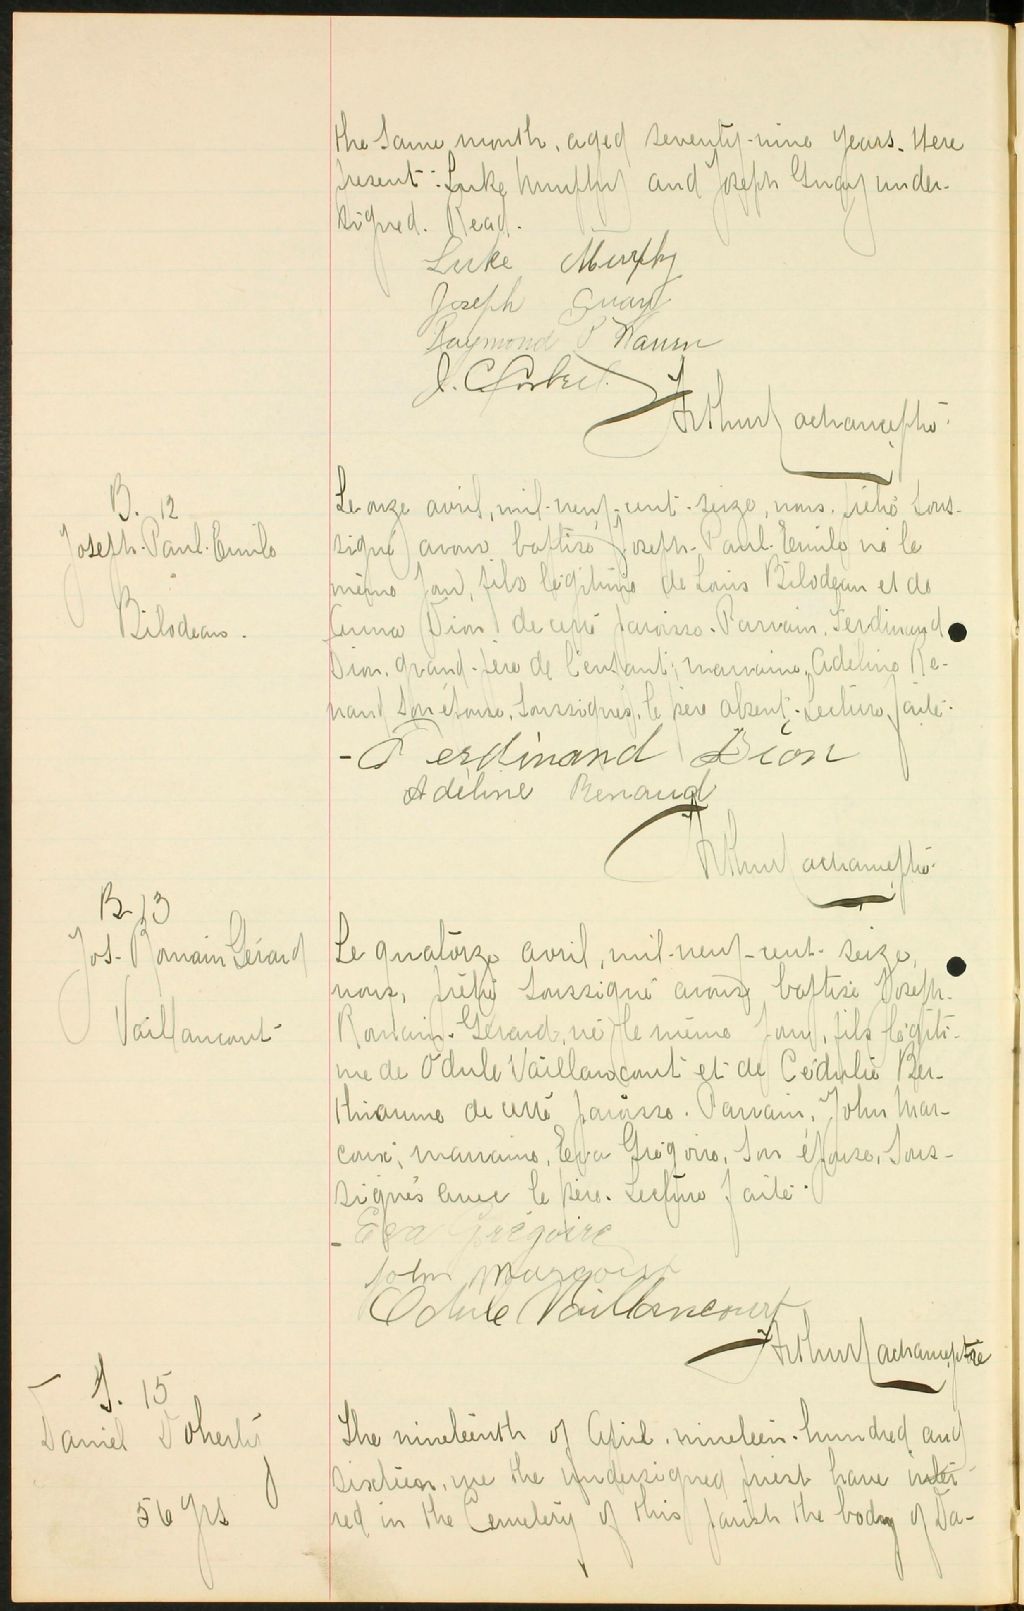 the same month, aged seventy-nine years. Were
present: Luke Murphy and Joseph Guay under-
signed. Read.
Luke Murphy
Joseph Guay
Raymond P
J. C. Corbeil
Arthur Lachance ptre
B. 12
Joseph-Paul-Emile
Bilodeau.
Le onze avril, mil-neuf-cent-seize, nous, prêtre sous-
signé avons baptisé Joseph-Paul-Emile né le
même jour, fils légitime de Louis Bilodeau et de
Anna Dion de cette paroisse. Parrain, Ferdinand
Dion, grand-père de l'enfant; marraine, Adeline Re-
naud son épouse, soussignés, le père absent. Lecture faite.
- Ferdinand Dion
Adéline Renaud
Arthur Lachance ptre
B. 13
Jos-Romain Gérard
Vaillancourt
Le quatorze avril, mil-neuf-cent-seize,
nous, prêtre soussigné avons baptisé Joseph-
Romain-Gérard, né le même jour, fils légiti-
me de Odule Vaillancourt et de Cédulie Ber-
thiaume de cette paroisse. Parrain, John Mar-
coux; marraine, Eva Grégoire, son épouse, sous-
signés avec le père. Lecture faite.
- Eva Grégoire
John Marcoux
Odule Vaillancourt
Arthur Lachance ptre
S. 15
Daniel Doherty
56 yrs
The nineteenth of April, nineteen-hundred and
sixteen, we the undersigned priest have inter-
red in the Cemetery of this parish the body of Da-